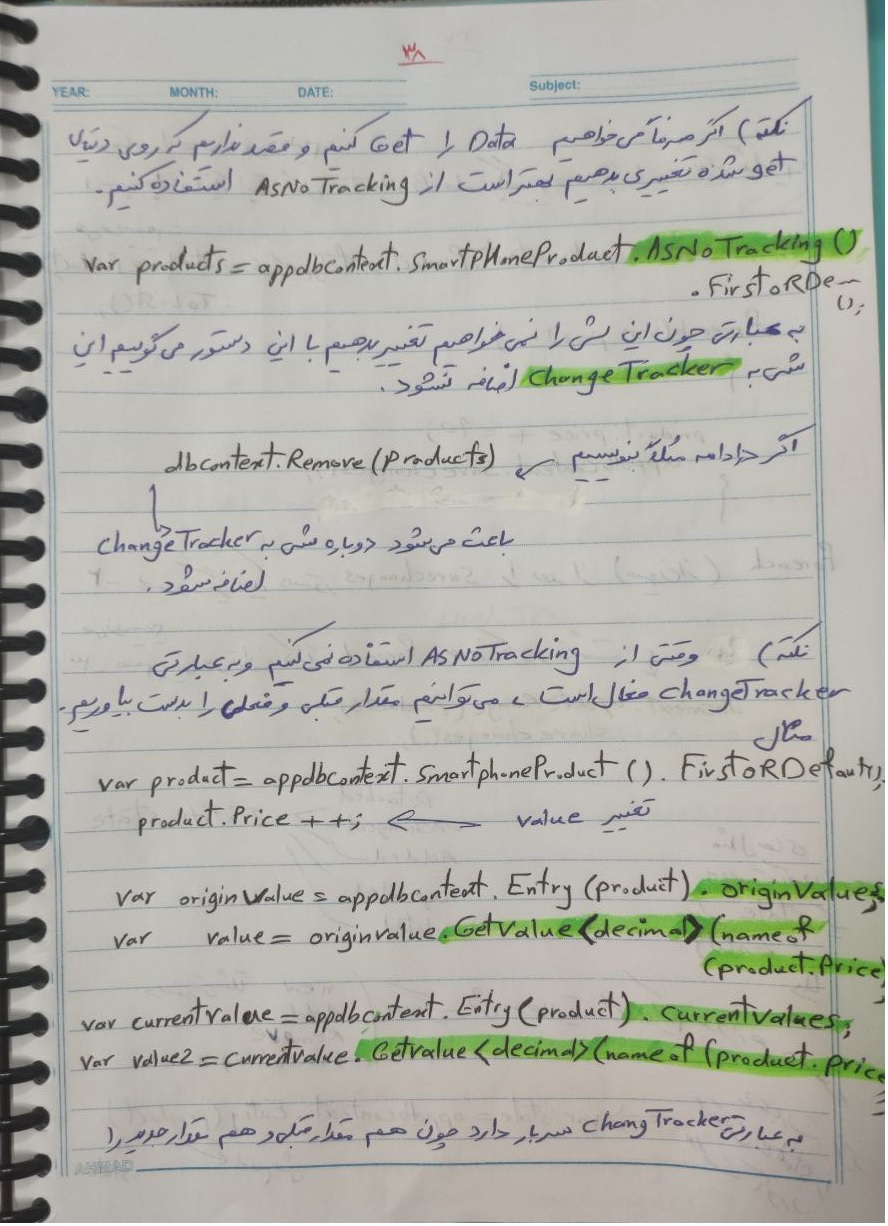 ۳۸
YEAR: MONTH: DATE: Subject:
نکته) اگر صرفاً می‌خواهیم Data را Get کنیم و قصد نداریم که روی دیتای
get شده تغییری بدهیم بهتر است از AsNoTracking استفاده کنیم.
var products = appdbcontext.SmartPHoneProduct.AsNoTracking()
.FirstoRDe~
();
به عبارتی چون این شی را نمی خواهیم تغییر بدهیم با این دستور می گوییم این
شی به ChangeTracker اضافه نشود.
اگر در ادامه مثلاً بنویسیم dbcontext.Remove(Products)
باعث می شود دوباره شی به ChangeTracker
اضافه شود.
نکته) وقتی از AsNoTracking استفاده نمی کنیم و به عبارتی
changeTracker فعال است، می توانیم مقدار قبلی و فعلی را بدست بیاوریم.
مثال
var product = appdbcontext.SmartphoneProduct().FirstoRDefault();
product.Price ++; ← تغییر value
var originvalue = appdbcontext.Entry(product).originValues;
var value = originvalue.GetValue<decimal>(nameof
(product.Price)
var currentvalue = appdbcontext.Entry(product).currentvalues;
var value2 = currentvalue.Getvalue<decimal>(nameof(product.price
به عبارتی ChangTracker سربار دارد چون هم مقدار قبلی و هم مقدار جدید را
AHMAD